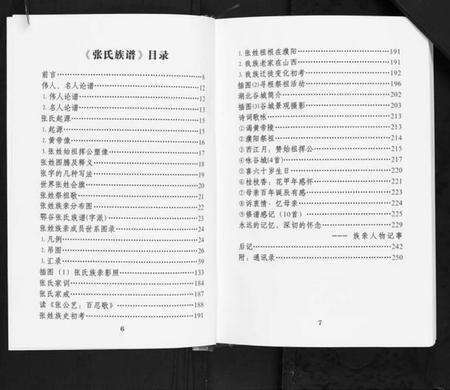 《张氏族谱》目录
前言……………………………………8
伟人、名人论谱………………………12
1.伟人论谱……………………………12
2.名人论谱……………………………13
张氏起源………………………………15
1.起源…………………………………15
2.黄帝像………………………………15
3.张姓始祖挥公塑像…………………16
张姓图腾及释义………………………16
张字的几种写法………………………17
世界张姓会旗…………………………18
张姓祭祖歌……………………………20
张姓族亲分布图………………………22
鄂谷张氏族谱(字派)…………………23
张姓族亲成员世系图录………………24
1.凡例…………………………………24
2.吊图…………………………………26
3.汇录…………………………………29
插图（1）张氏族亲影照………………133
张氏家训………………………………184
张氏家戒………………………………187
读《张公艺：百忍歌》………………188
张姓族史初考…………………………191
6
1.张姓祖根在濮阳……………………191
2.我族老家在山西……………………191
3.我族迁徙变化初考…………………192
插图②寻根祭祖活动…………………196
湖北谷城简介…………………………202
插图③谷城景观摄影…………………203
诗词歌咏………………………………213
①谒黄帝陵……………………………213
②濮阳祭祖……………………………214
③西江月：赞始祖挥公………………215
④咏谷城(4首)…………………………217
⑤喜六十岁生日………………………220
⑥桂枝香：花甲年感怀………………221
⑦母亲百年诞辰有感…………………222
⑧诉衷情·忆母亲………………………224
⑨修谱感记（10首）……………………225
永远的记忆，深切的怀念……………229
——族亲人物记事
后记……………………………………242
附：通讯录……………………………250
7